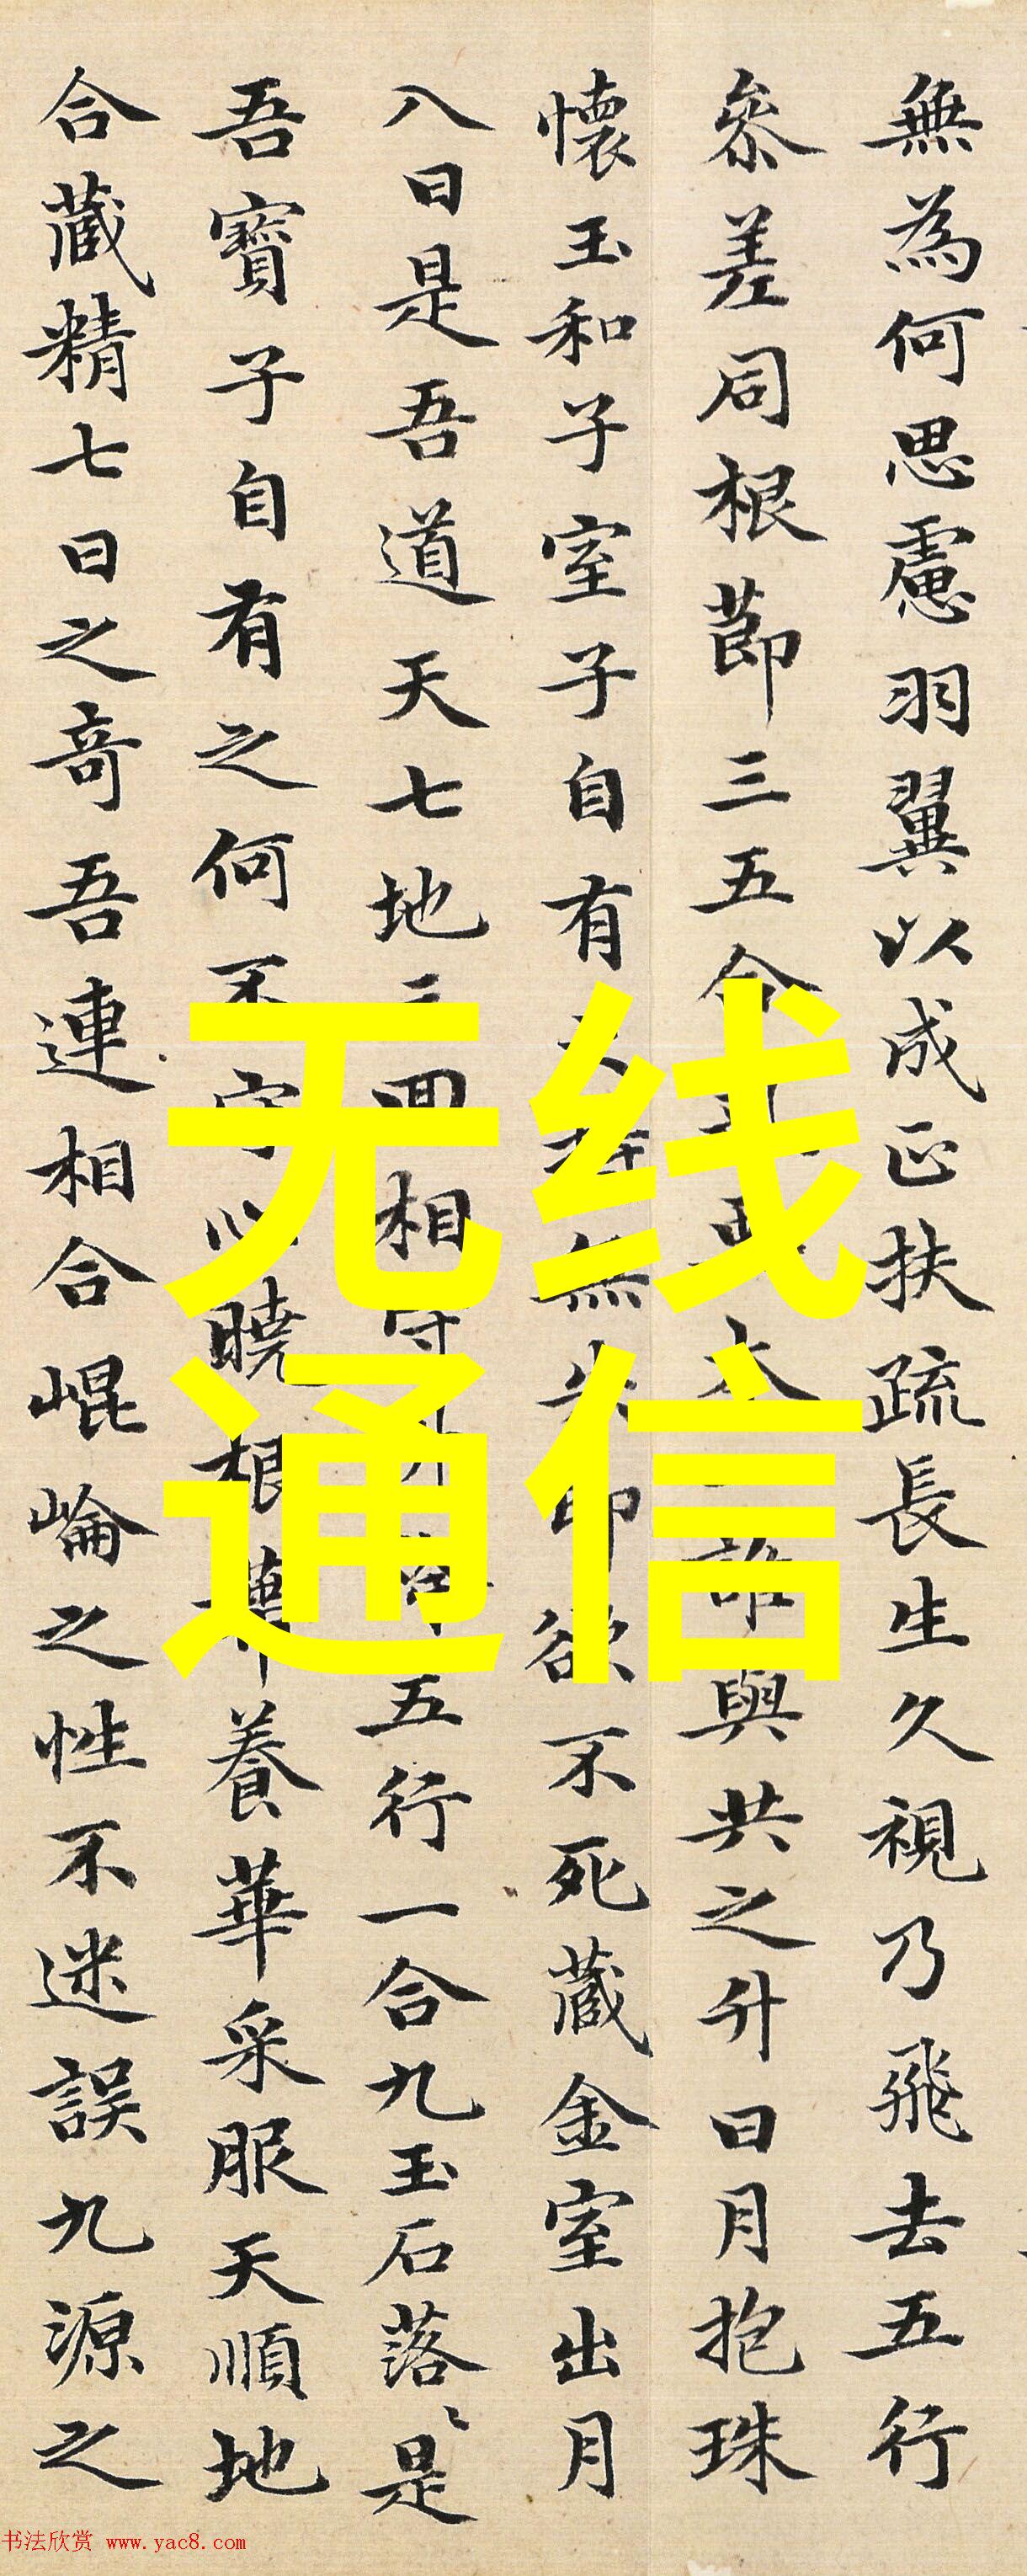 無為何思慮羽翼以成正扶疏長生久視乃飛去五行
參差同根節三五合与與共之升日月抱珠
懷玉和子室子自有之持無失即欲不死藏金室出月
八日是吾道天七地三回相守五行一合九玉石落〻是
吾寶子自有之何不守心曉根蒂養華采服天順地
合藏精七日之奇吾連相合崐崘之性不迷誤九源之
无线
通信
书法欣赏 www.yac8.com